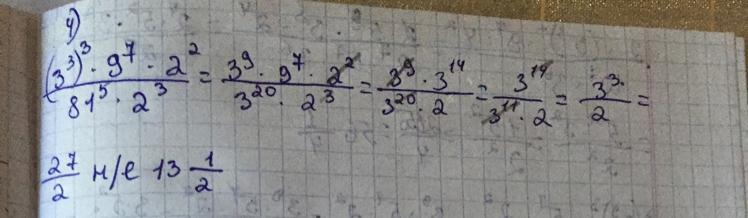 4)
\frac{(3^3)^3 · 9^7 · 2^2}{81^5 · 2^3} = \frac{3^9 · 9^7 · 2^2}{3^{20} · 2^3} = \frac{3^9 · 3^{14}}{3^{20} · 2} = \frac{3^{14}}{3^{11} · 2} = \frac{3^3}{2} =
\frac{27}{2} и/е 13 \frac{1}{2}